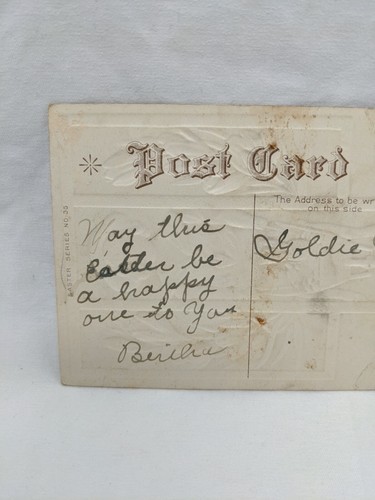 Post Card
The Address to be wr
on this side
EASTER SERIES NO. 38
May this
Easter be
a happy
one to you
Bertha
Goldie